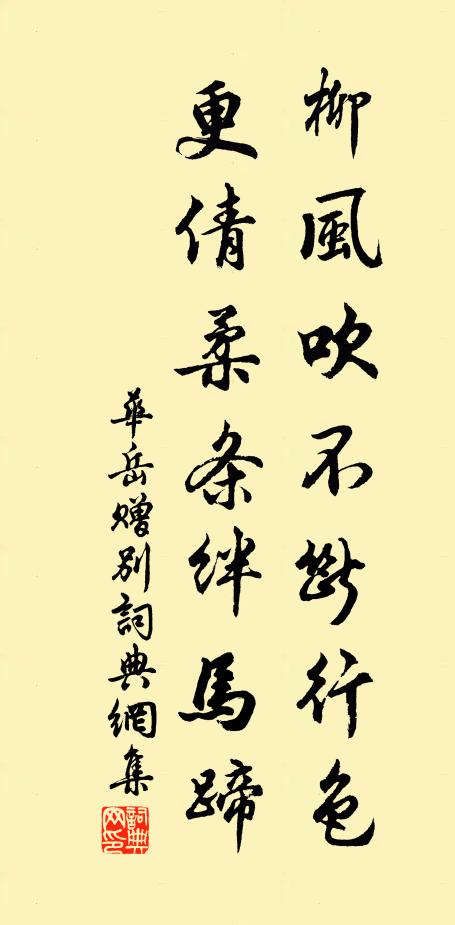 柳風吹不斷行色
更倩柔条絆馬蹄
華岳贈別詞典網集
詞典网印